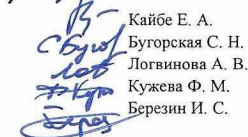 Кайбе Е. А.
Бугорская С. Н.
Логвинова А. В.
Кужева Ф. М.
Березин И. С.